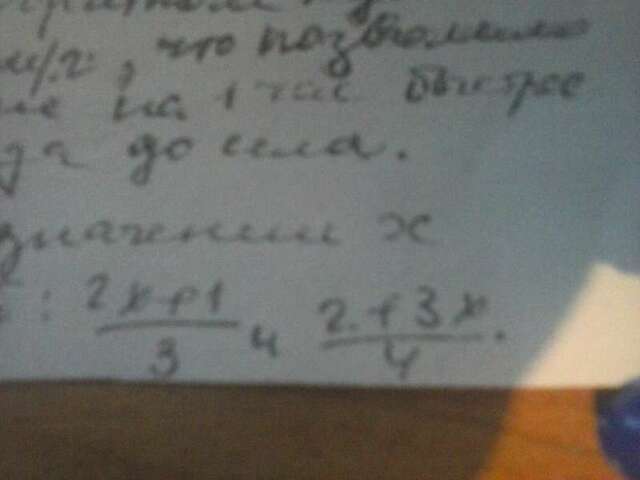 обратном
км/ч, что позволило
на 1 час быстрее
до села.
значении x
: 2x+1/3 и 2+3x/4.